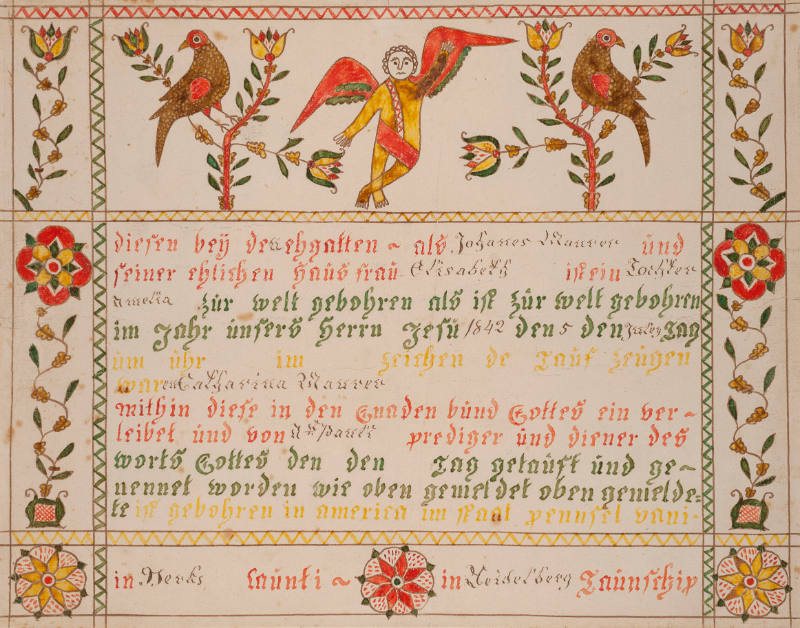 diesen beÿ de ehgatten ~ als Johanes Maurer ünd
seiner ehlichen Haüs fraü Elisabeth ist ein Tochter
Amelia zür welt gebohren als ist zür welt gebohren
im Jahr ünsers Herrn Jesü 1842 den 5 den Juley Tag
üm ühr im zeichen de Taüf zeügen
waren Catharina Maurer
mithin diese in den Gnaden bünd Gottes ein ver-
leibet ünd von prediger ünd diener des
worts Gottes den den Tag getaüft ünd ge~
nennet worden wie oben gemeldet oben gemelde=
te ist gebohren in america im staat pennsel vani-
in Berks Caünti ~ in Heidelberg Taünschip